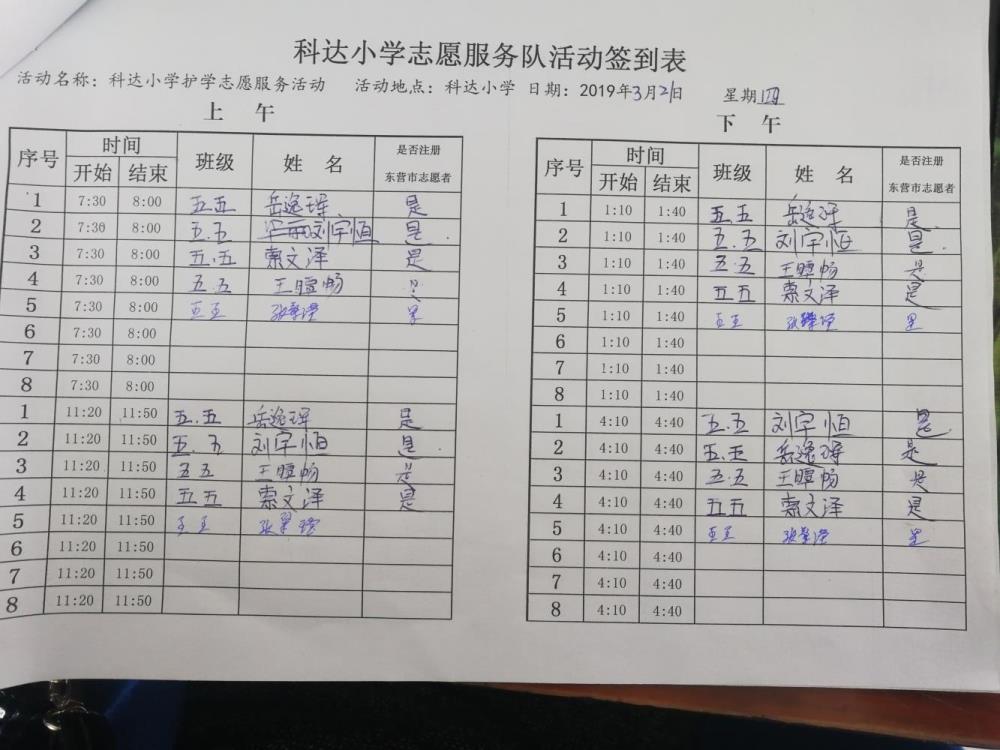 科达小学志愿服务队活动签到表
活动名称：科达小学护学志愿服务活动 活动地点：科达小学 日期：2019年3月21日 星期四
上 午
序号 时间 班级 姓 名 是否注册
开始 结束 东营市志愿者
1 7:30 8:00 五五 岳逸珲 是
2 7:30 8:00 五.五 刘宇恒 是.
3 7:30 8:00 五.五 索文泽 是
4 7:30 8:00 五.五 王暐畅 是
5 7:30 8:00 五五 张 是
6 7:30 8:00
7 7:30 8:00
8 7:30 8:00
1 11:20 11:50 五.五 岳逸珲 是
2 11:20 11:50 五.五 刘宇恒 是.
3 11:20 11:50 五五 王暐畅 是
4 11:20 11:50 五五 索文泽 是
5 11:20 11:50 五五 张
6 11:20 11:50
7 11:20 11:50
8 11:20 11:50
下 午
序号 时间 班级 姓 名 是否注册
开始 结束 东营市志愿者
1 1:10 1:40 五五 岳逸珲 是
2 1:10 1:40 五.五 刘宇恒 是.
3 1:10 1:40 五.五 王暐畅 是
4 1:10 1:40 五五 索文泽 是
5 1:10 1:40 五五 张 是
6 1:10 1:40
7 1:10 1:40
8 1:10 1:40
1 4:10 4:40 五.五 刘宇恒 是.
2 4:10 4:40 五.五 岳逸珲 是
3 4:10 4:40 五.五 王暐畅 是
4 4:10 4:40 五五 索文泽 是
5 4:10 4:40 五五 张 是
6 4:10 4:40
7 4:10 4:40
8 4:10 4:40